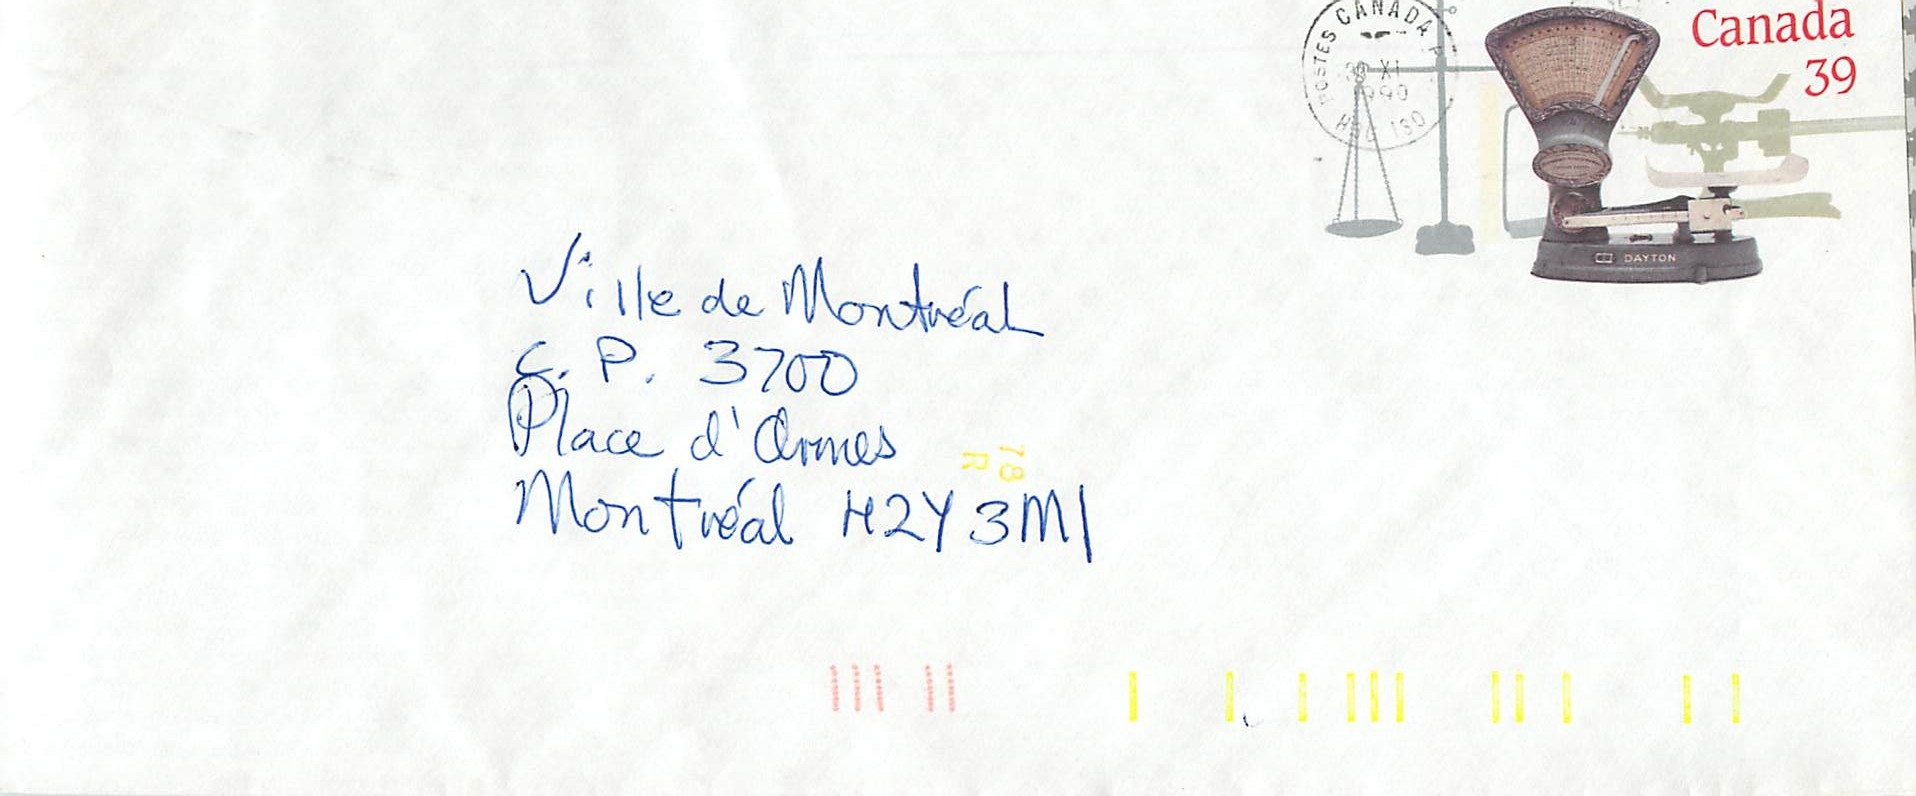 POSTES CANADA P
XI
1990
Canada
39
DAYTON
Ville de Montréal
C. P. 3700
Place d'Armes
Montréal H2Y 3M1
78
R